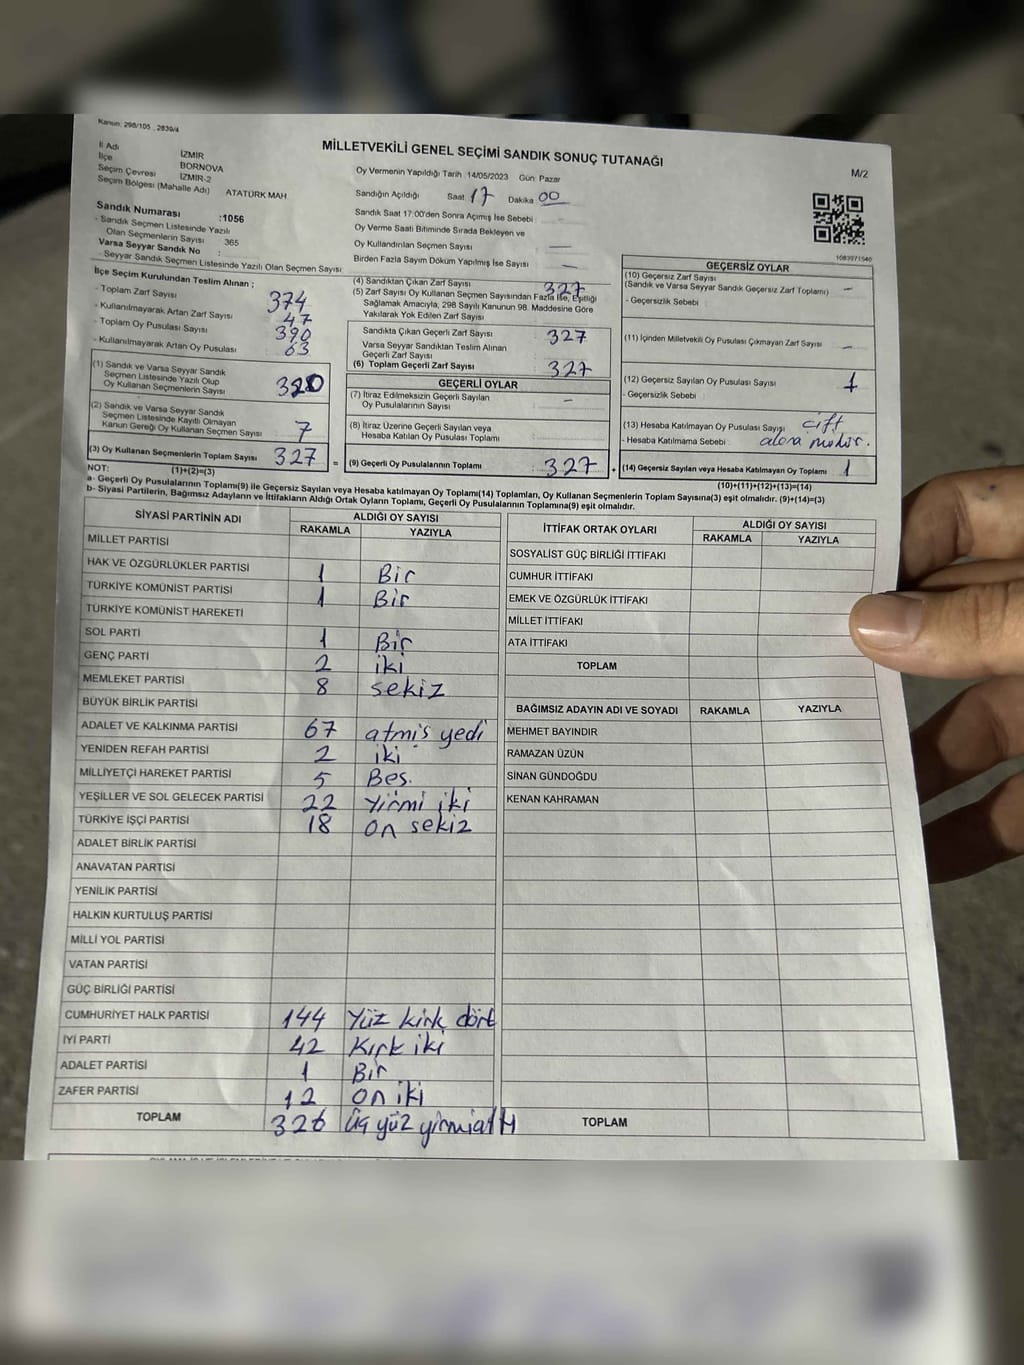 Kanun: 298/105 , 2839/4
MİLLETVEKİLİ GENEL SEÇİMİ SANDIK SONUÇ TUTANAĞI
M/2
İl Adı İZMİR
İlçe BORNOVA
Seçim Çevresi İZMİR-2
Seçim Bölgesi (Mahalle Adı) ATATÜRK MAH
Oy Vermenin Yapıldığı Tarih :14/05/2023 Gün: Pazar
Sandığın Açıldığı Saat 17 Dakika 00
Sandık Saat 17:00'den Sonra Açımış İse Sebebi
Oy Verme Saati Bitiminde Sırada Bekleyen ve
Oy Kullandırılan Seçmen Sayısı —
Birden Fazla Sayım Döküm Yapılmış İse Sayısı —
Sandık Numarası :1056
- Sandık Seçmen Listesinde Yazılı
Olan Seçmenlerin Sayısı 365
Varsa Seyyar Sandık No :
- Seyyar Sandık Seçmen Listesinde Yazılı Olan Seçmen Sayısı
1083971540
İlçe Seçim Kurulundan Teslim Alınan ;
- Toplam Zarf Sayısı 374
- Kullanılmayarak Artan Zarf Sayısı 47
- Toplam Oy Pusulası Sayısı 390
- Kullanılmayarak Artan Oy Pusulası 63
(1) Sandık ve Varsa Seyyar Sandık
Seçmen Listesinde Yazılı Olup
Oy Kullanan Seçmenlerin Sayısı 320
(2) Sandık ve Varsa Seyyar Sandık
Seçmen Listesinde Kayıtlı Olmayan
Kanun Gereği Oy Kullanan Seçmen Sayısı 7
(3) Oy Kullanan Seçmenlerin Toplam Sayısı 327
(4) Sandıktan Çıkan Zarf Sayısı 327
(5) Zarf Sayısı Oy Kullanan Seçmen Sayısından Fazla İse, Eşitliği
Sağlamak Amacıyla, 298 Sayılı Kanunun 98. Maddesine Göre
Yakılarak Yok Edilen Zarf Sayısı
Sandıkta Çıkan Geçerli Zarf Sayısı 327
Varsa Seyyar Sandıktan Teslim Alınan
Geçerli Zarf Sayısı
(6) Toplam Geçerli Zarf Sayısı 327
GEÇERLİ OYLAR
(7) İtiraz Edilmeksizin Geçerli Sayılan
Oy Pusulalarının Sayısı —
(8) İtiraz Üzerine Geçerli Sayılan veya
Hesaba Katılan Oy Pusulası Toplamı
= (9) Geçerli Oy Pusulalarının Toplamı : 327
GEÇERSİZ OYLAR
(10) Geçersiz Zarf Sayısı
(Sandık ve Varsa Seyyar Sandık Geçersiz Zarf Toplamı) —
- Geçersizlik Sebebi :
(11) İçinden Milletvekili Oy Pusulası Çıkmayan Zarf Sayısı —
(12) Geçersiz Sayılan Oy Pusulası Sayısı 1
- Geçersizlik Sebebi
(13) Hesaba Katılmayan Oy Pusulası Sayısı çift
- Hesaba Katılmama Sebebi :
(14) Geçersiz Sayılan veya Hesaba Katılmayan Oy Toplamı 1
NOT: (1)+(2)=(3)
(10)+(11)+(12)+(13)=(14)
a- Geçerli Oy Pusulalarının Toplamı(9) ile Geçersiz Sayılan veya Hesaba katılmayan Oy Toplamı(14) Toplamları, Oy Kullanan Seçmenlerin Toplam Sayısına(3) eşit olmalıdır. (9)+(14)=(3)
b- Siyasi Partilerin, Bağımsız Adayların ve İttifakların Aldığı Ortak Oyların Toplamı, Geçerli Oy Pusulalarının Toplamına(9) eşit olmalıdır.
SİYASİ PARTİNİN ADI ALDIĞI OY SAYISI
RAKAMLA YAZIYLA
MİLLET PARTİSİ
HAK VE ÖZGÜRLÜKLER PARTİSİ 1 Bir
TÜRKİYE KOMÜNİST PARTİSİ 1 Bir
TÜRKİYE KOMÜNİST HAREKETİ
SOL PARTİ 1 Bir
GENÇ PARTİ 2 iki
MEMLEKET PARTİSİ 8 sekiz
BÜYÜK BİRLİK PARTİSİ
ADALET VE KALKINMA PARTİSİ 67 atmış yedi
YENİDEN REFAH PARTİSİ 2 iki
MİLLİYETÇİ HAREKET PARTİSİ 5 Beş.
YEŞİLLER VE SOL GELECEK PARTİSİ 22 Yirmi iki
TÜRKİYE İŞÇİ PARTİSİ 18 on sekiz
ADALET BİRLİK PARTİSİ
ANAVATAN PARTİSİ
YENİLİK PARTİSİ
HALKIN KURTULUŞ PARTİSİ
MİLLİ YOL PARTİSİ
VATAN PARTİSİ
GÜÇ BİRLİĞİ PARTİSİ
CUMHURİYET HALK PARTİSİ 144 Yüz kırk dört
İYİ PARTİ 42 Kırk iki
ADALET PARTİSİ 1 Bir
ZAFER PARTİSİ 12 on iki
TOPLAM 326 üç yüz yirmialtı
İTTİFAK ORTAK OYLARI ALDIĞI OY SAYISI
RAKAMLA YAZIYLA
SOSYALİST GÜÇ BİRLİĞİ İTTİFAKI
CUMHUR İTTİFAKI
EMEK VE ÖZGÜRLÜK İTTİFAKI
MİLLET İTTİFAKI
ATA İTTİFAKI
TOPLAM
BAĞIMSIZ ADAYIN ADI VE SOYADI RAKAMLA YAZIYLA
MEHMET BAYINDIR
RAMAZAN ÜZÜN
SİNAN GÜNDOĞDU
KENAN KAHRAMAN
TOPLAM